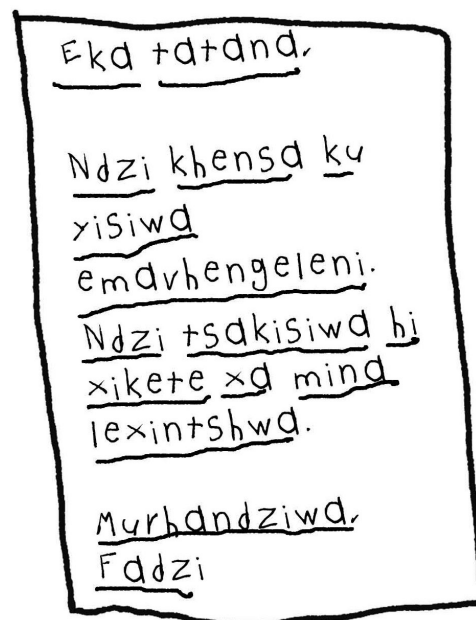 Eka tatana,
Ndzi khensa ku
yisiwa
emavhengeleni.
Ndzi tsakisiwa hi
xikete xa mina
lexintshwa.
Murhandziwa,
Fadzi